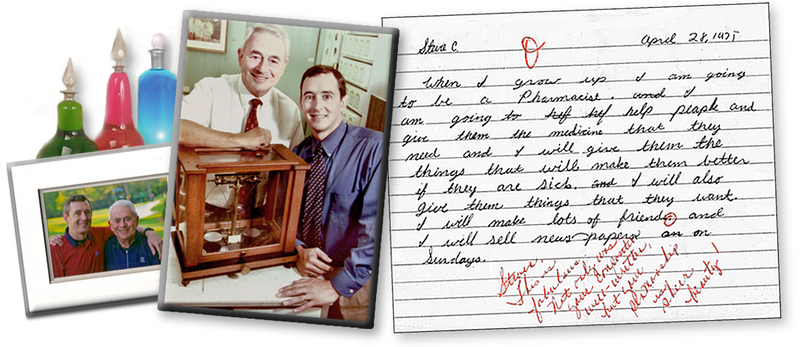 Steve C
April 28, 1975
When I grow up I am going
to be a Pharmacist. and I
am going to help people and
give them the medicine that they
need and I will give them the
things that will make them better
if they are sick. and I will also
give them things that they want.
I will make lots of friends and
I will sell news papers on
Sundays.
Steven,
This is
fabulous.
Not only was
your composition
well-written,
but your
penmanship
was
sheer
beauty!